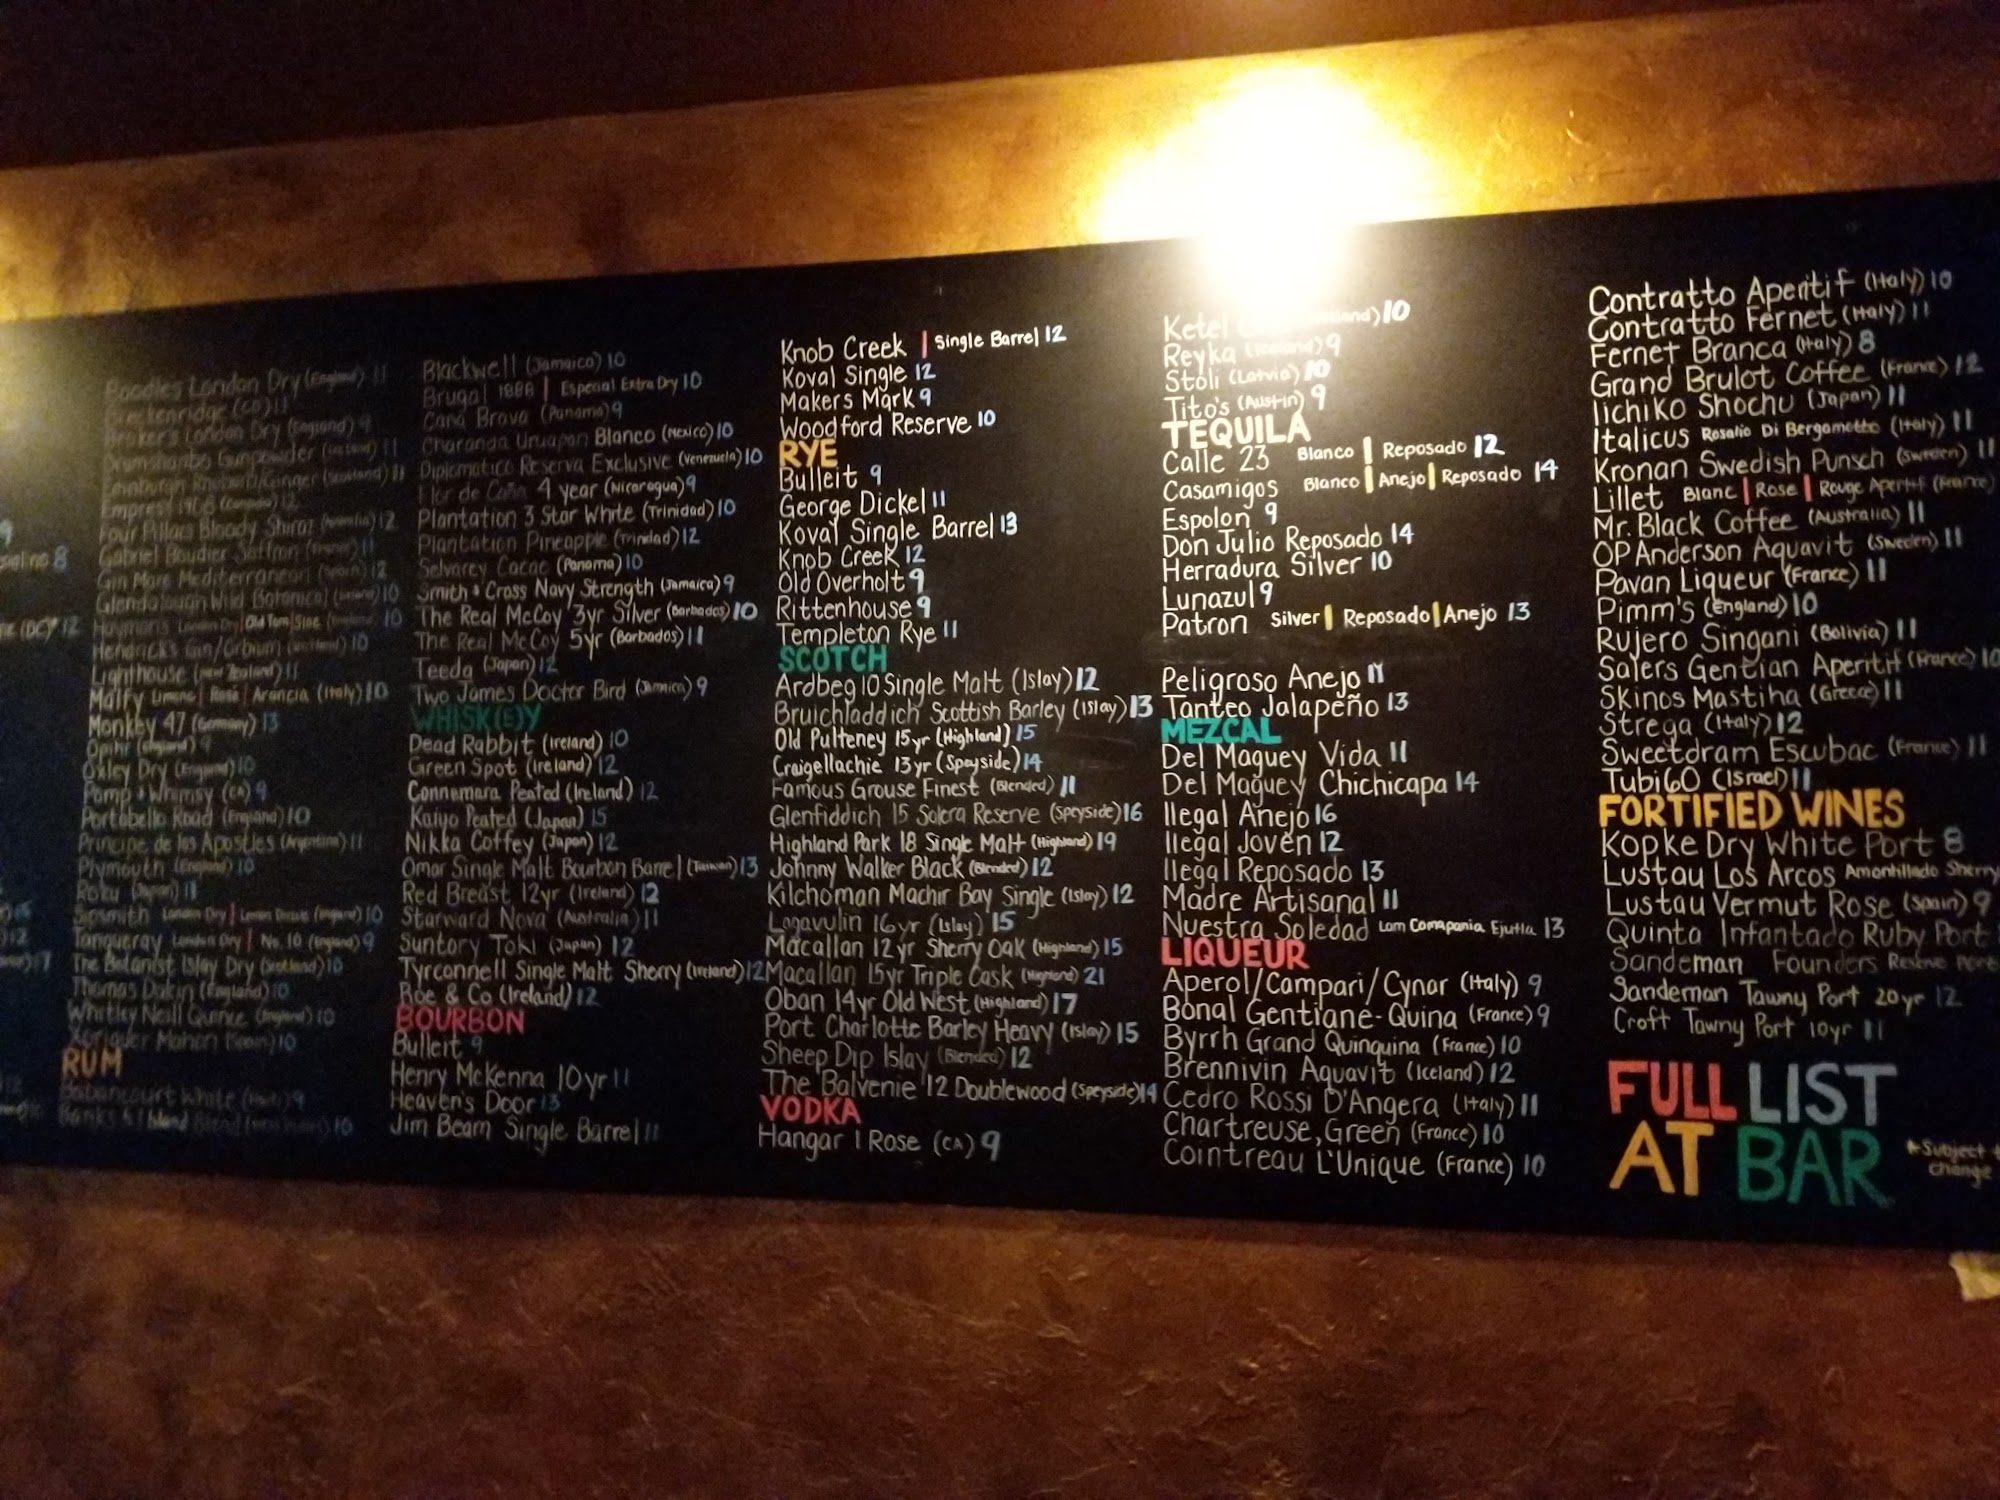 9
8
(DC) 12
Poodles London Dry (England) 11
Breckenridge (CO) 11
Broker's London Dry (England) 9
Drumshanbo Gunpowder (Ireland) 11
Edinburgh Rhubarb/Ginger (Scotland) 11
Empress 1908 (Canada) 12
Four Pillars Bloody Shiraz (Australia) 12
Gabriel Boudier Saffron (France) 11
Gin Mare Mediterranean (Spain) 12
Glendalough Wild Botanical (Ireland) 10
Haymans London Dry | Old Tom | Sloe 10
Hendrick's Gin/Orbium (Scotland) 10
Lighthouse (New Zealand) 11
Malfy Limone | Rosa | Arancia (Italy) 10
Monkey 47 (Germany) 13
Opihr (England) 9
Oxley Dry (England) 10
Pomp & Whimsy (CA) 9
Portobello Road (England) 10
Principe de los Apostles (Argentina) 11
Plymouth (England) 10
Roku (Japan) 11
Sipsmith London Dry | Lemon Drizzle (England) 10
Tanqueray London Dry | No. 10 (England) 9
The Botanist Islay Dry (Scotland) 10
Thomas Dakin (England) 10
Whitley Neill Quince (England) 10
Xoriguer Mahon (Spain) 10
RUM
Babancourt White (Haiti) 9
Banks 5 Island Blend 10
Blackwell (Jamaica) 10
Brugal 1888 | Especial Extra Dry 10
Cana Brava (Panama) 9
Charanda Uruapan Blanco (Mexico) 10
Diplomatico Reserva Exclusive (Venezuela) 10
Flor de Caña 4 year (Nicaragua) 9
Plantation 3 Star White (Trinidad) 10
Plantation Pineapple (Trinidad) 12
Selvarey Cacao (Panama) 10
Smith & Cross Navy Strength (Jamaica) 9
The Real McCoy 3yr Silver (Barbados) 10
The Real McCoy 5yr (Barbados) 11
Teeda (Japan) 12
Two James Doctor Bird (Jamaica) 9
WHISK(E)Y
Dead Rabbit (Ireland) 10
Green Spot (Ireland) 12
Connemara Peated (Ireland) 12
Kaiyo Peated (Japan) 15
Nikka Coffey (Japan) 12
Omar Single Malt Bourbon Barrel (Taiwan) 13
Red Breast 12yr (Ireland) 12
Starward Nova (Australia) 11
Suntory Toki (Japan) 12
Tyrconnell Single Malt Sherry (Ireland) 12
Roe & Co (Ireland) 12
BOURBON
Bulleit 9
Henry McKenna 10yr 11
Heaven's Door 13
Jim Beam Single Barrel 11
Knob Creek | Single Barrel 12
Koval Single 12
Makers Mark 9
Woodford Reserve 10
RYE
Bulleit 9
George Dickel 11
Koval Single Barrel 13
Knob Creek 12
Old Overholt 9
Rittenhouse 9
Templeton Rye 11
SCOTCH
Ardbeg 10 Single Malt (Islay) 12
Bruichladdich Scottish Barley (Islay) 13
Old Pulteney 15yr (Highland) 15
Craigellachie 13yr (Speyside) 14
Famous Grouse Finest (Blended) 11
Glenfiddich 15 Solera Reserve (Speyside) 16
Highland Park 18 Single Malt (Highland) 19
Johnny Walker Black (Blended) 12
Kilchoman Machir Bay Single (Islay) 12
Lagavulin 16yr (Islay) 15
Macallan 12yr Sherry Oak (Highland) 15
Macallan 15yr Triple Cask (Highland) 21
Oban 14yr Old West (Highland) 17
Port Charlotte Barley Heavy (Islay) 15
Sheep Dip Islay (Blended) 12
The Balvenie 12 Doublewood (Speyside) 14
VODKA
Hangar 1 Rose (CA) 9
Ketel 10
Reyka (Iceland) 9
Stoli (Latvia) 10
Tito's (Austin) 9
TEQUILA
Calle 23 Blanco | Reposado 12
Casamigos Blanco | Anejo | Reposado 14
Espolon 9
Don Julio Reposado 14
Herradura Silver 10
Lunazul 9
Patron Silver | Reposado | Anejo 13
Peligroso Anejo 11
Tanteo Jalapeño 13
MEZCAL
Del Maguey Vida 11
Del Maguey Chichicapa 14
Ilegal Anejo 16
Ilegal Joven 12
Ilegal Reposado 13
Madre Artisanal 11
Nuestra Soledad Lam Comapania Ejutla 13
LIQUEUR
Aperol/Campari/Cynar (Italy) 9
Bonal Gentiane-Quina (France) 9
Byrrh Grand Quinquina (France) 10
Brennivin Aquavit (Iceland) 12
Cedro Rossi D'Angera (Italy) 11
Chartreuse, Green (France) 10
Cointreau L'Unique (France) 10
Contratto Aperitif (Italy) 10
Contratto Fernet (Italy) 11
Fernet Branca (Italy) 8
Grand Brulot Coffee (France) 12
Iichiko Shochu (Japan) 11
Italicus Rosalio Di Bergamotto (Italy) 11
Kronan Swedish Punsch (Sweden) 11
Lillet Blanc | Rose | Rouge Apertif (France)
Mr. Black Coffee (Australia) 11
OP Anderson Aquavit (Sweden) 11
Pavan Liqueur (France) 11
Pimm's (England) 10
Rujero Singani (Bolivia) 11
Salers Gentian Aperitif (France) 10
Skinos Mastiha (Greece) 11
Strega (Italy) 12
Sweetdram Escubac (France) 11
Tubi 60 (Israel) 11
FORTIFIED WINES
Kopke Dry White Port 8
Lustau Los Arcos Amontillado Sherry
Lustau Vermut Rose (Spain) 9
Quinta Infantado Ruby Port
Sandeman Founders Reserve Port
Sandeman Tawny Port 20yr 12
Croft Tawny Port 10yr 11
FULL LIST
AT BAR
*Subject
change